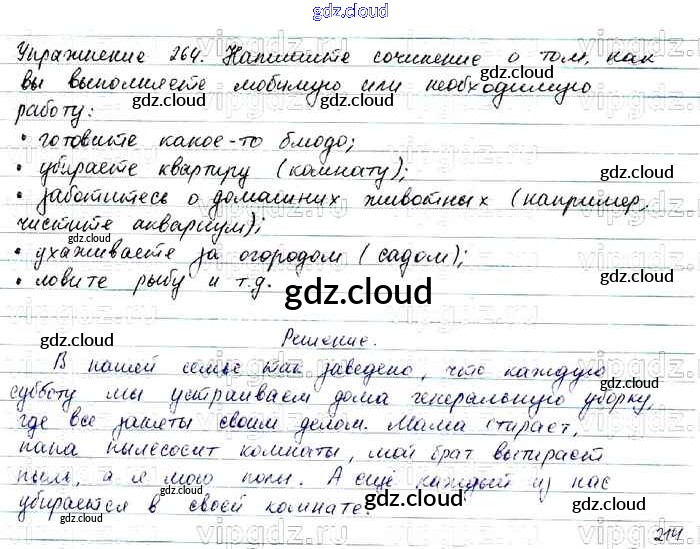 gdz.cloud
Упражнение 264. Напишите сочинение о том, как
вы выполняете любимую или необходимую
работу:
• готовите какое-то блюдо;
• убираете квартиру (комнату);
• заботитесь о домашних животных (например,
чистите аквариум);
• ухаживаете за огородом (садом);
• ловите рыбу и т.д.
gdz.cloud
Решение.
В нашей семье так заведено, что каждую
субботу мы устраиваем дома генеральную уборку,
где все заняты своим делом. Мама стирает,
папа пылесосит комнаты, мой брат вытирает
пыль, а я мою полы. А ещё каждый из нас
убирается в своей комнате.
214